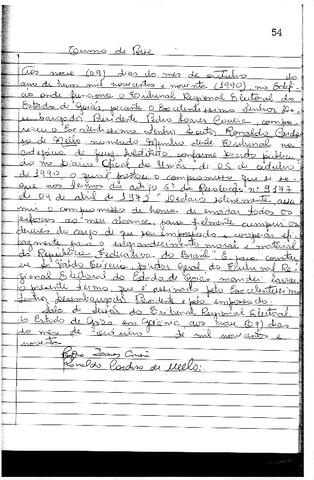 54
Termo de Posse
Aos nove (09) dias do mês de outubro do
ano de hum mil novecentos e noventa (1990), no Edifí-
cio onde funciona o Tribunal Regional Eleitoral do
Estado de Goiás, perante o Excelentíssimo Senhor De-
sembargador Presidente Pedro Soares Correia, compa-
receu o Excelentíssimo Senhor Doutor Ronaldo Cardo-
so de Mello nomeado Membro deste Tribunal na
categoria de Juiz Substituto conforme decreto publica-
do no Diário Oficial da União, de 05 de outubro
de 1990, o qual prestou o compromisso que se se-
gue nos termos do artigo 5º da Resolução nº 9177
de 04 de abril de 1972 "Declaro solenemente, assu-
mir o compromisso de honra de envidar todos os
esforços ao meu alcance, para fielmente cumprir os
deveres do cargo de que sou empossado e cooperar efi-
cazmente para o engrandecimento moral e material
da República Federativa do Brasil". E para constar
eu Diretor Geral do Tribunal Re-
gional Eleitoral do Estado de Goiás mandei lavrar
o presente termo, que é assinado pelo Excelentíssimo
Senhor Desembargador Presidente e pelo empossado.
Sala de Sessões do Tribunal Regional Eleitoral
do Estado de Goiás em Goiânia, aos nove (09) dias
do mês de outubro de mil novecentos e
noventa.
Pedro Soares Correia
Ronaldo Cardoso de Mello.